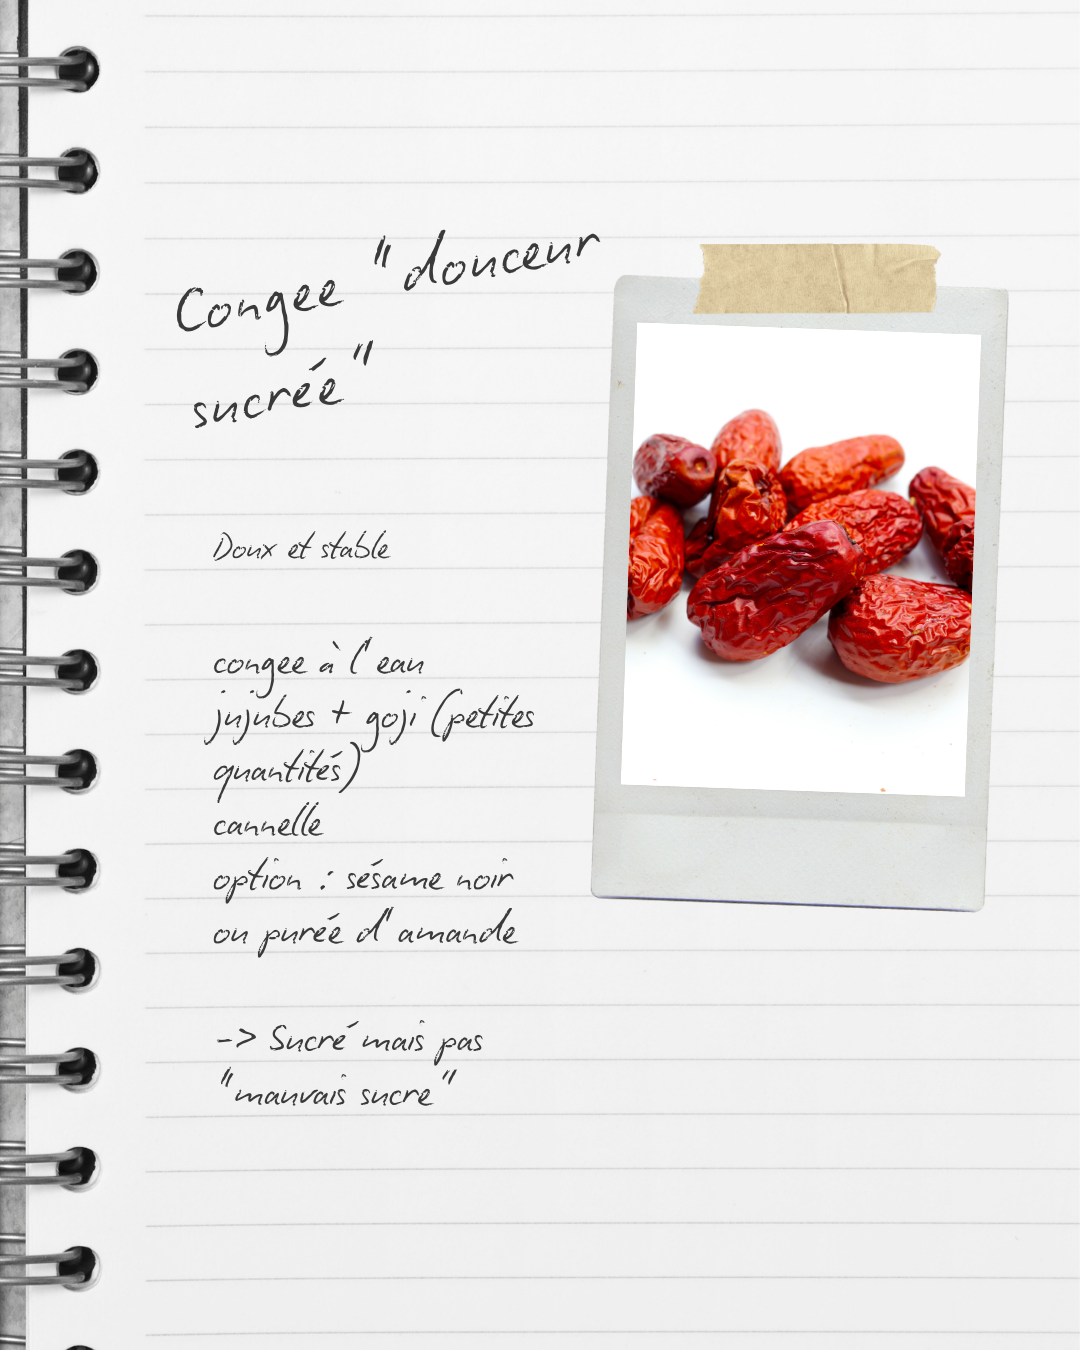 Congee "douceur
sucrée"
Doux et stable
congee à l'eau
jujubes + goji (petites
quantités)
cannelle
option : sésame noir
ou purée d'amande
-> Sucré mais pas
"mauvais sucre"